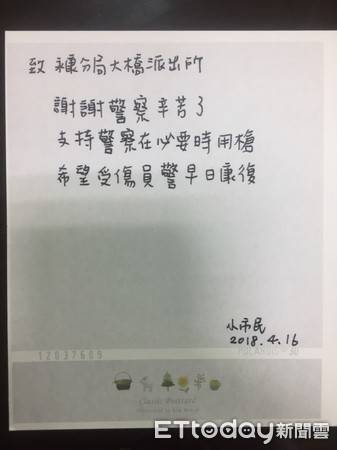 致 永康分局大橋派出所
謝謝警察辛苦了
支持警察在必要時用槍
希望受傷員警早日康復
小市民
2018.4.16
Classic Postcard
ETtoday新聞雲